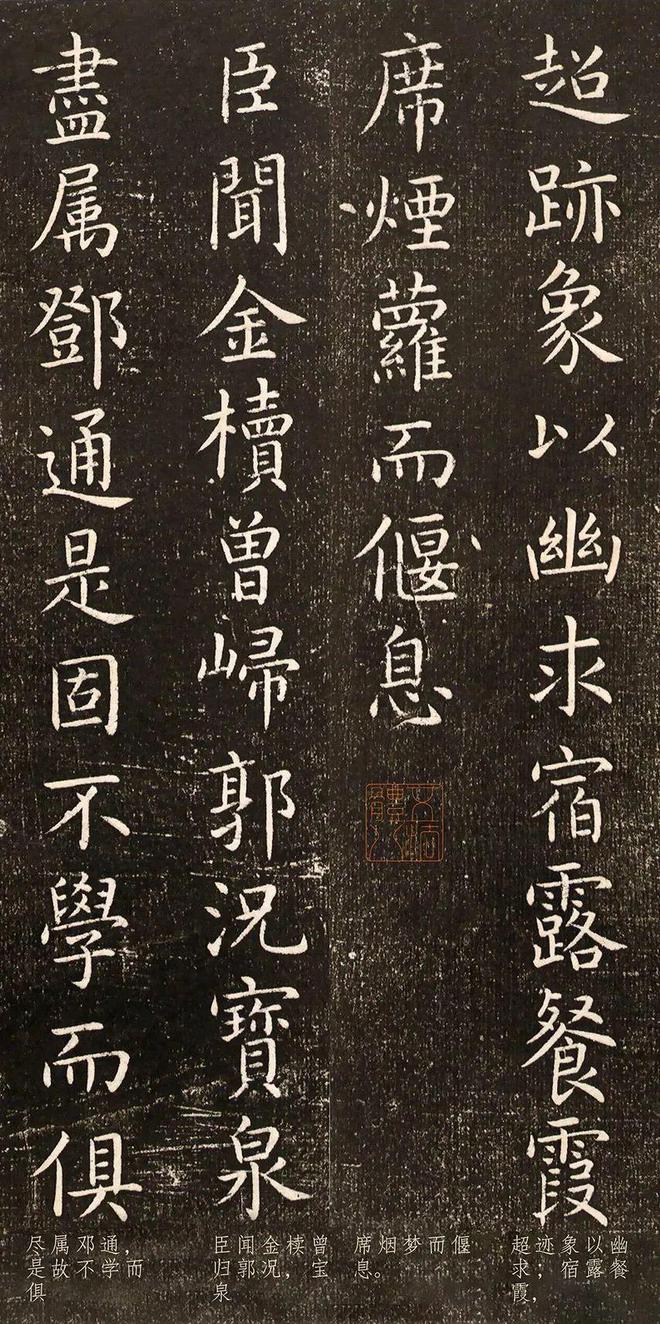 超跡象以幽求宿露餐霞
席煙蘿而偃息
臣聞金櫝曾歸郭況寶泉
盡属鄧通是固不學而俱
超迹象以幽
求；宿露餐
霞，
席烟梦而偃
息。
臣闻金椟曾
归郭况，宝
泉
尽属邓通，
是故不学而
俱